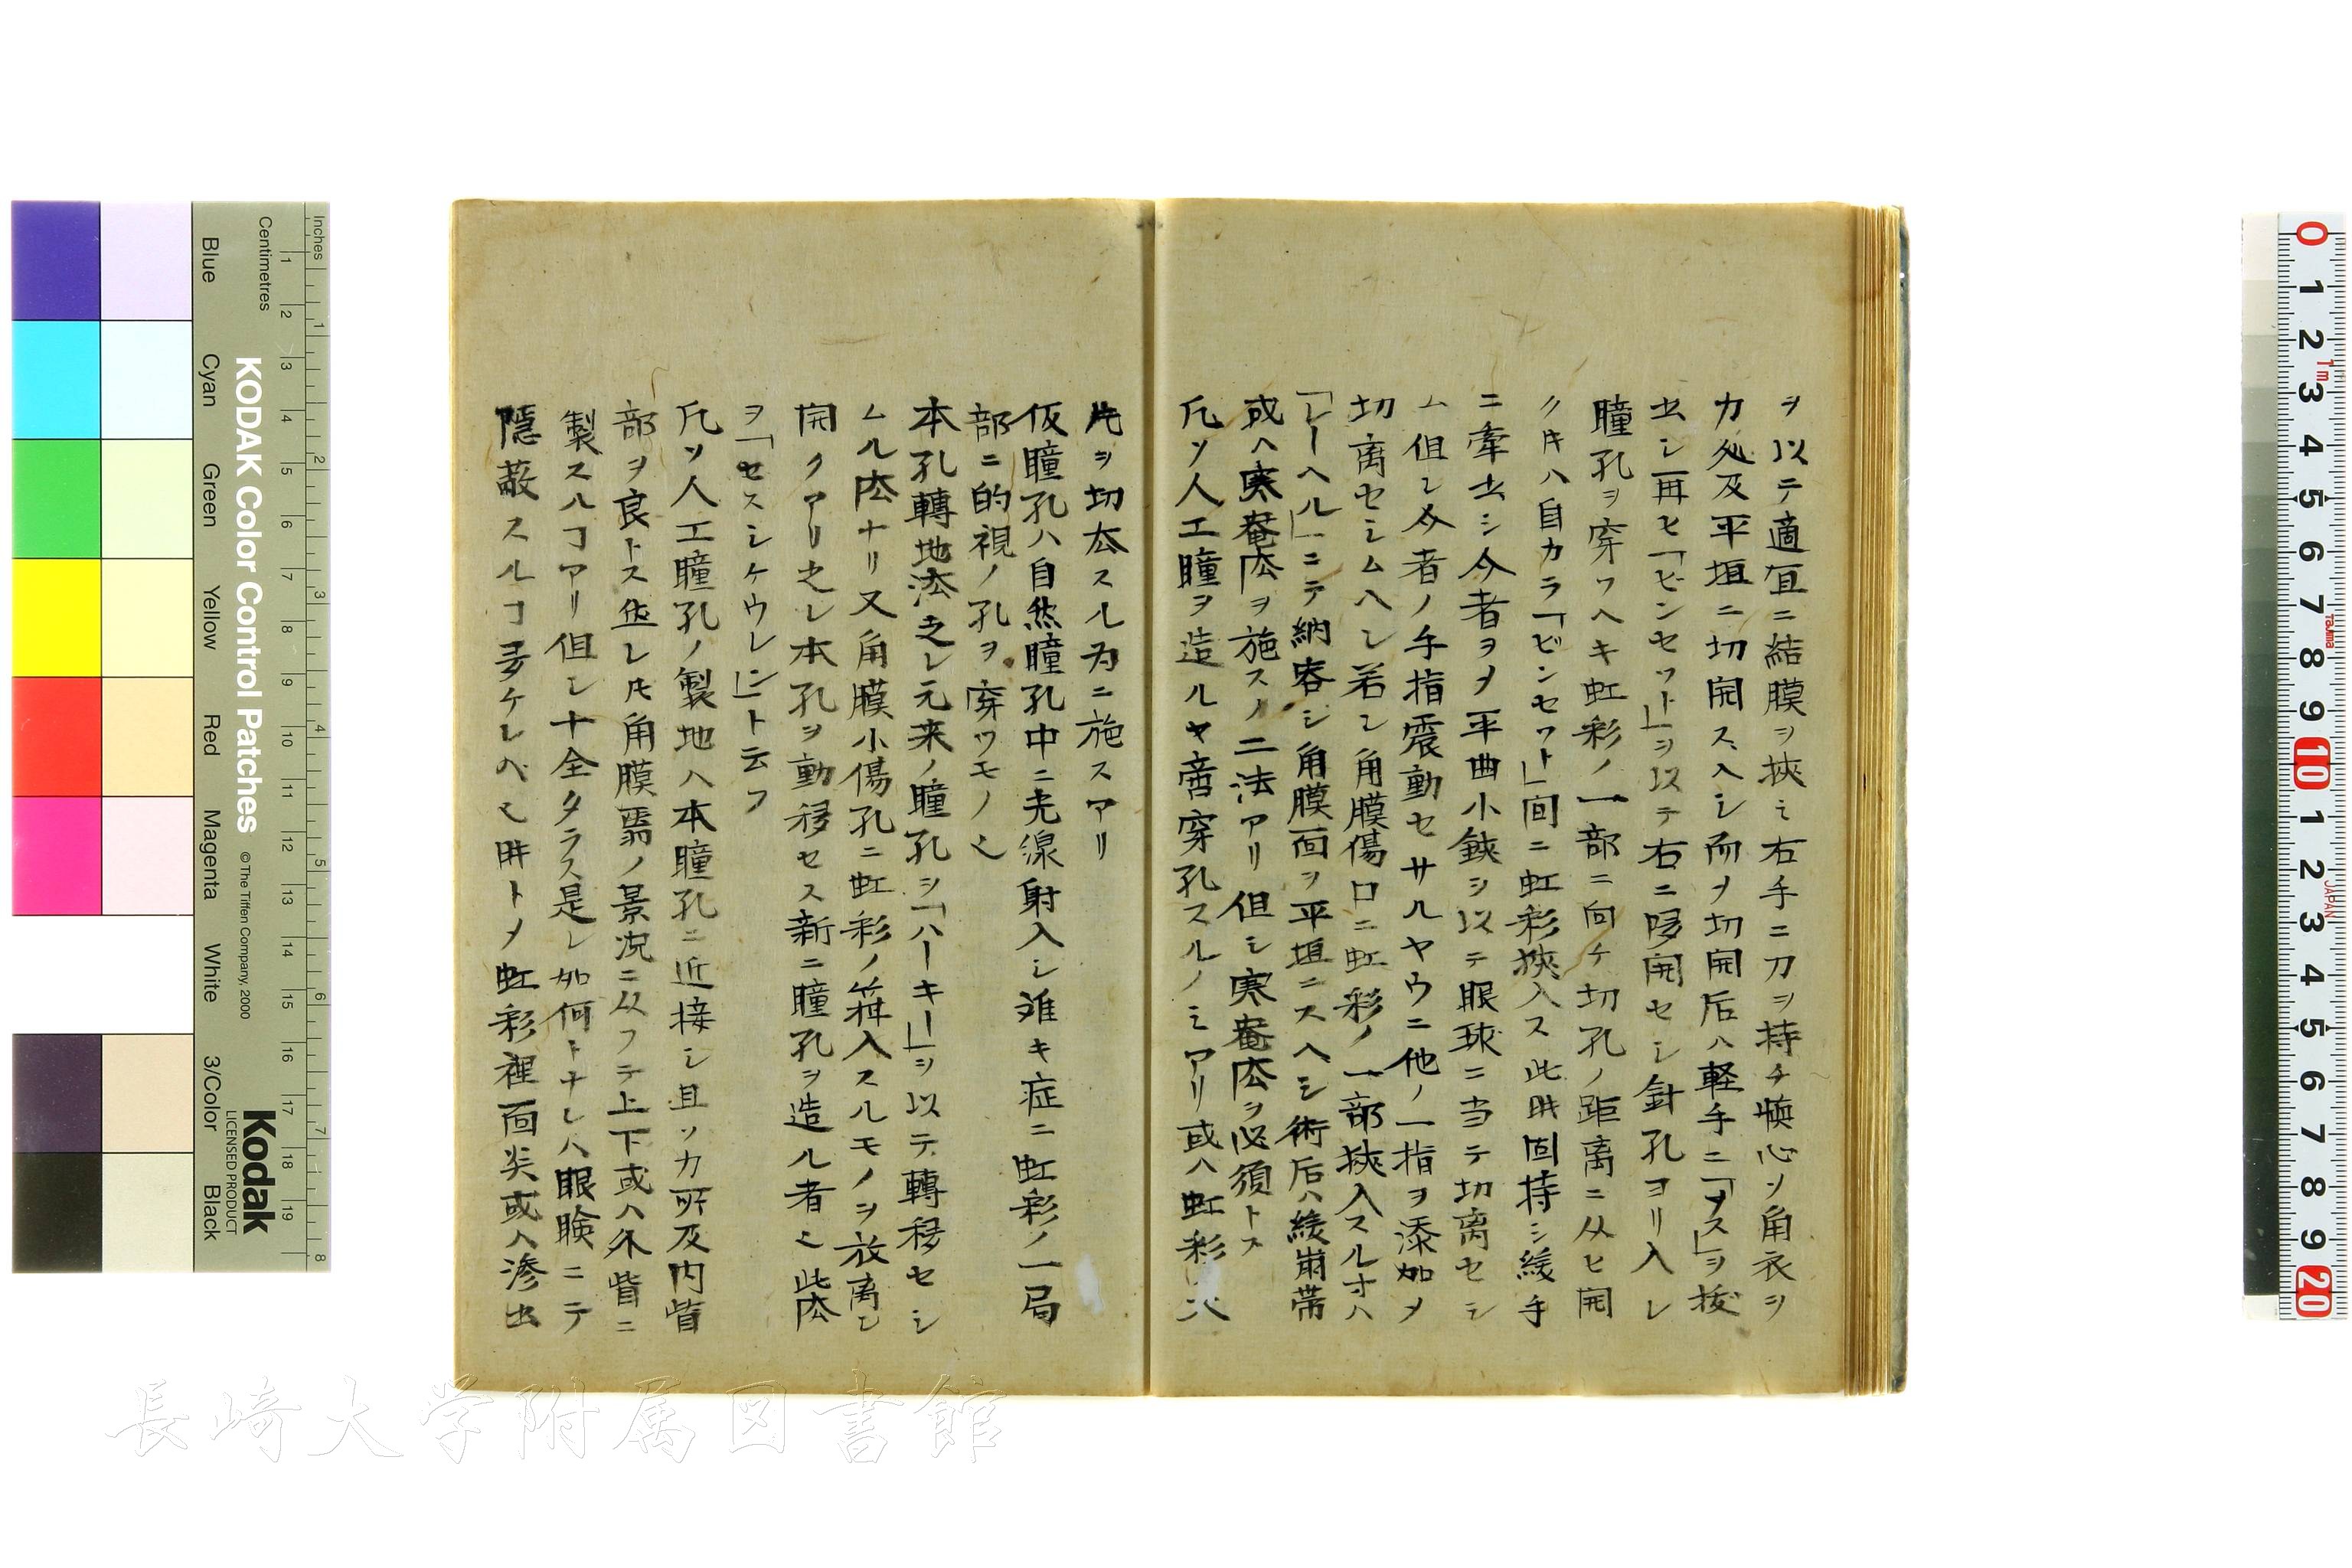 ヲ以テ適宜ニ結膜ヲ挾ミ右手ニ刀ヲ持チ慎心ソ角衣ヲ
カ処及平垣ニ切開スヘシ而ヲ切開后ハ軽手ニ「メス」ヲ抜
出シ再ヒ「ビンセット」ヲ以テ右ニ哆開セシ針孔ヨリ入レ
瞳孔ヲ穿ワヘキ虹彩ノ一部ニ向ケ切孔ノ距离ニ从ヒ開
ク𪜈ハ自カラ「ビンセット」间ニ虹彩挾入ス此时固持シ緩手
ニ牽出シ今者ヲメ平曲小鋏ヲ以テ眼球ニ当テ切离セシ
ム但シ介者ノ手指震動セサルヤウニ他ノ一指ヲ添加メ
切离セシムヘシ若シ角膜傷口ニ虹彩ノ一部挾入スルオハ
「レーヘル」ニテ納容シ角膜面ヲ平垣ニスヘシ術后ハ緩绷帯
或ヘ寒菴法ヲ施スノ二法アリ但シ寒菴法ヲ必須トス
凡ソ人工瞳ヲ造ルヤ啻穿孔スルノミアリ或ハ虹彩
片ヲ切去スル為ニ施スアリ
仮瞳孔ハ自然瞳孔中ニ光線射入シ難キ症ニ虹彩ノ一局
部ニ的視ノ孔ヲ穿ツモノ也
本孔轉地法之レ元来ノ瞳孔ヲ「ハーキー」ヲ以テ轉移セシ
ムル法ナリ又角膜小傷孔ニ虹彩ノ箝入スルモノヲ放离シ
開クアリ之レ本孔ヲ動移セス新ニ瞳孔ヲ造ル者也此法
ヲ「セスシケウレン」ト云フ
凡ソ人工瞳孔ノ製地ハ本瞳孔ニ近接シ且ツカ所及内眥
部ヲ良トス然レ𪜈角膜翳ノ景况ニ从フテ上下或ハ外眥ニ
製スルヿアリ但シ十全タラス是レ如何トナレハ眼瞼ニテ
隠蔽スルヿ多ケレハ也时トメ虹彩裡面炎或ハ滲出
Inches
Centimetres
Blue
Cyan
Green
Yellow
Red
Magenta
White
3/Color
Black
KODAK Color Control Patches
©The Tiffen Company, 2000
Kodak
LICENSED PRODUCT
長崎大学附属図書館